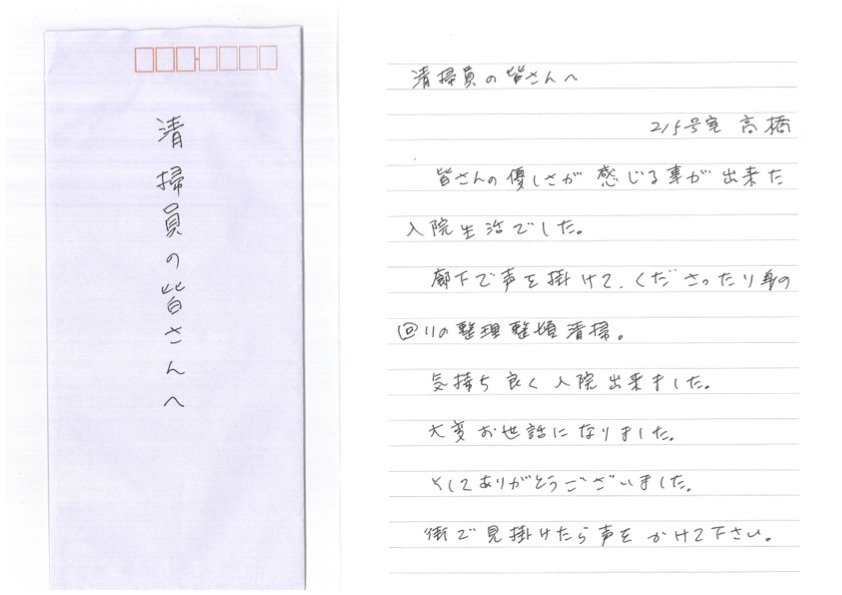 清掃員の皆さんへ
清掃員の皆さんへ
215号室 高橋
皆さんの優しさが感じる事が出来た
入院生活でした。
廊下で声を掛けて、くださったり身の
回りの整理整頓清掃。
気持ち良く入院出来ました。
大変お世話になりました。
そしてありがとうございました。
街で見掛けたら声をかけて下さい。